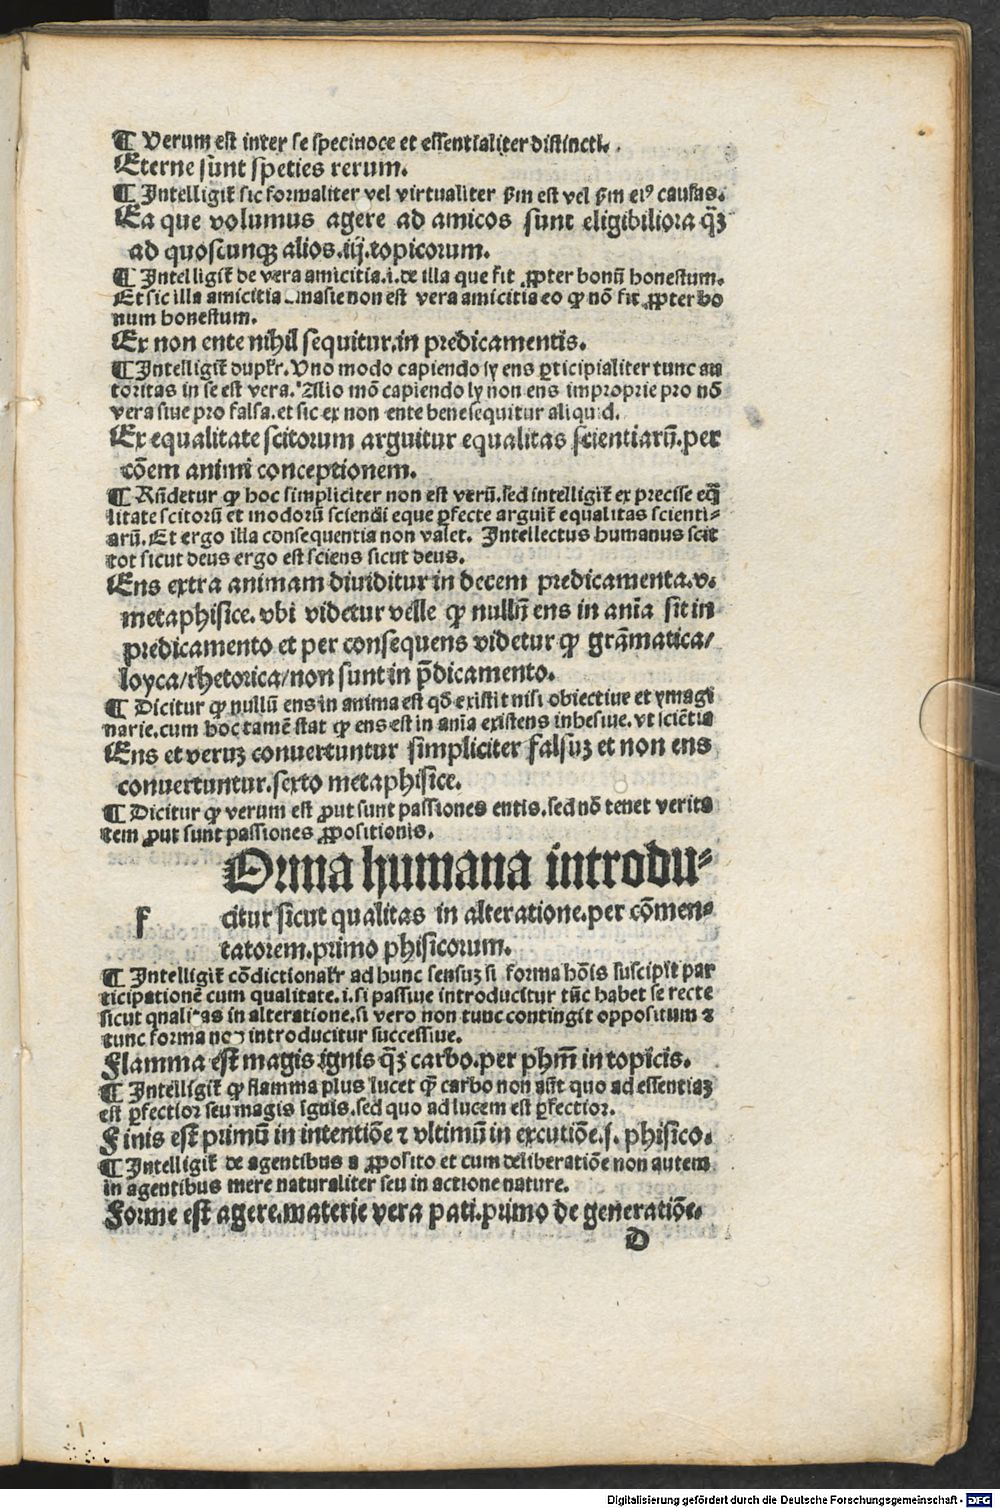 ¶ Verum est inter se specivoce et essentialiter distincti.
Eterne sunt speties rerum.
¶ Intelligit᷑ sic formaliter vel virtualiter ẞm est vel ẞm eiꝰ causas.
Ea que volumus agere ad amicos sunt eligibiliora q̃ꝫ
ad quoscunqꝫ alios.iij.topicorum.
¶ Intelligit᷑ de vera amicitia.i.de illa que fit ꝓpter bonũ honestum.
Et sic illa amicitia non est vera amicitia eo ꝙ nõ fit ꝓpter bo
num honestum.
Ex non ente nihil sequitur.in predicamentis.
¶ Intelligit᷑ duplr̃. Uno modo capiendo ly ens ꝑticipialiter tunc au
toritas in se est vera. Alio mõ capiendo ly non ens improprie pro nõ
vera siue pro falsa.et sic ex non ente benesequitur aliquid.
Ex equalitate scitorum arguitur equalitas scientiarũ.per
cõem animi conceptionem.
¶ Rñdetur ꝙ hoc simpliciter non est verũ.sed intelligit᷑ ex precise eq̃
litate scitorũ et modorũ sciendi eque ꝑfecte arguit᷑ equalitas scienti⸗
arũ. Et ergo illa consequentia non valet. Intellectus humanus scit
tot sicut deus ergo est sciens sicut deus.
Ens extra animam diuiditur in decem predicamenta.v.
metaphisice.vbi videtur velle ꝙ nullũ ens in aĩa sit in
predicamento et per consequens videtur ꝙ grãmatica/
loyca/rhetorica/non sunt in p̃dicamento.
¶ Dicitur ꝙ nullũ ens in anima est qd̃ existit nisi obiectiue et ymagi
narie.cum hoc tamẽ stat ꝙ ens est in aĩa existens inhesiue.vt sciẽtia
Ens et verũꝫ conuertuntur simpliciter falsuꝫ et non ens
conuertuntur.sexto metaphisice.
¶ Dicitur ꝙ verum est ꝓut sunt passiones entis.sed nõ tenet verita
tem ꝓut sunt passiones ꝓpositionis.
f Orma humana introdu⸗
citur sicut qualitas in alteratione.per cõmen⸗
tatorem.primo phisicorum.
¶ Intelligit᷑ cõdictionalr̃ ad hunc sensuꝫ si forma hõis suscipit par
ticipationẽ cum qualitate.i.si passiue introducitur tũc habet se recte
sicut qualitas in alteratione.si vero non tunc contingit oppositum ⁊
tunc forma non introducitur successiue.
Flamma est magis ignis q̃ꝫ carbo.per phm̃ in topicis.
¶ Intelligit᷑ ꝙ flamma plus lucet q̃ carbo non aũt quo ad essentiaꝫ
est ꝑfectior seu magis ignis.sed quo ad lucem est ꝑfectior.
Finis est primũ in intentiõe ⁊ vltimũ in excutiõe.ẜ. phisico.
¶ Intelligit᷑ de agentibus a ꝓposito et cum deliberatiõe non autem
in agentibus mere naturaliter seu in actione nature.
Forme est agere.materie vera pati.primo de generatiõe.
D
Digitalisierung gefördert durch die Deutsche Forschungsgemeinschaft - DFG